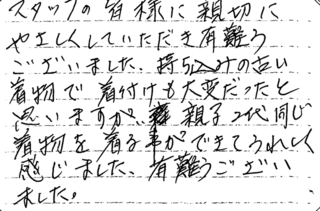 スタッフの皆様に親切に
やさしくしていただき有難う
ございました、持ち込みの古い
着物で着付けも大変だったと
思いますが、親子2代同じ
着物を着る事ができてうれしく
感じました、有難うござい
ました。